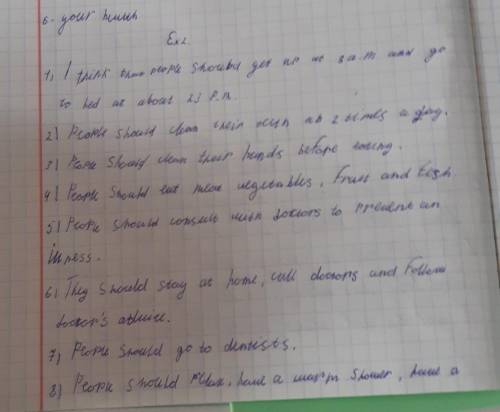 6- your health
Ex2.
1) I think that people should get up at 8 a.m and go
to bed at about 23 p.m.
2) People should clean their teeth at 2 times a day.
3) People should clean their hands before eating.
4) People should eat meat vegetables, fruit and fish.
5) People should consult with doctors to prevent an
ilness.
6) They should stay at home, call doctors and follow
doctor's advice.
7) People should go to dentists.
8) People should relax, have a warm shower, have a